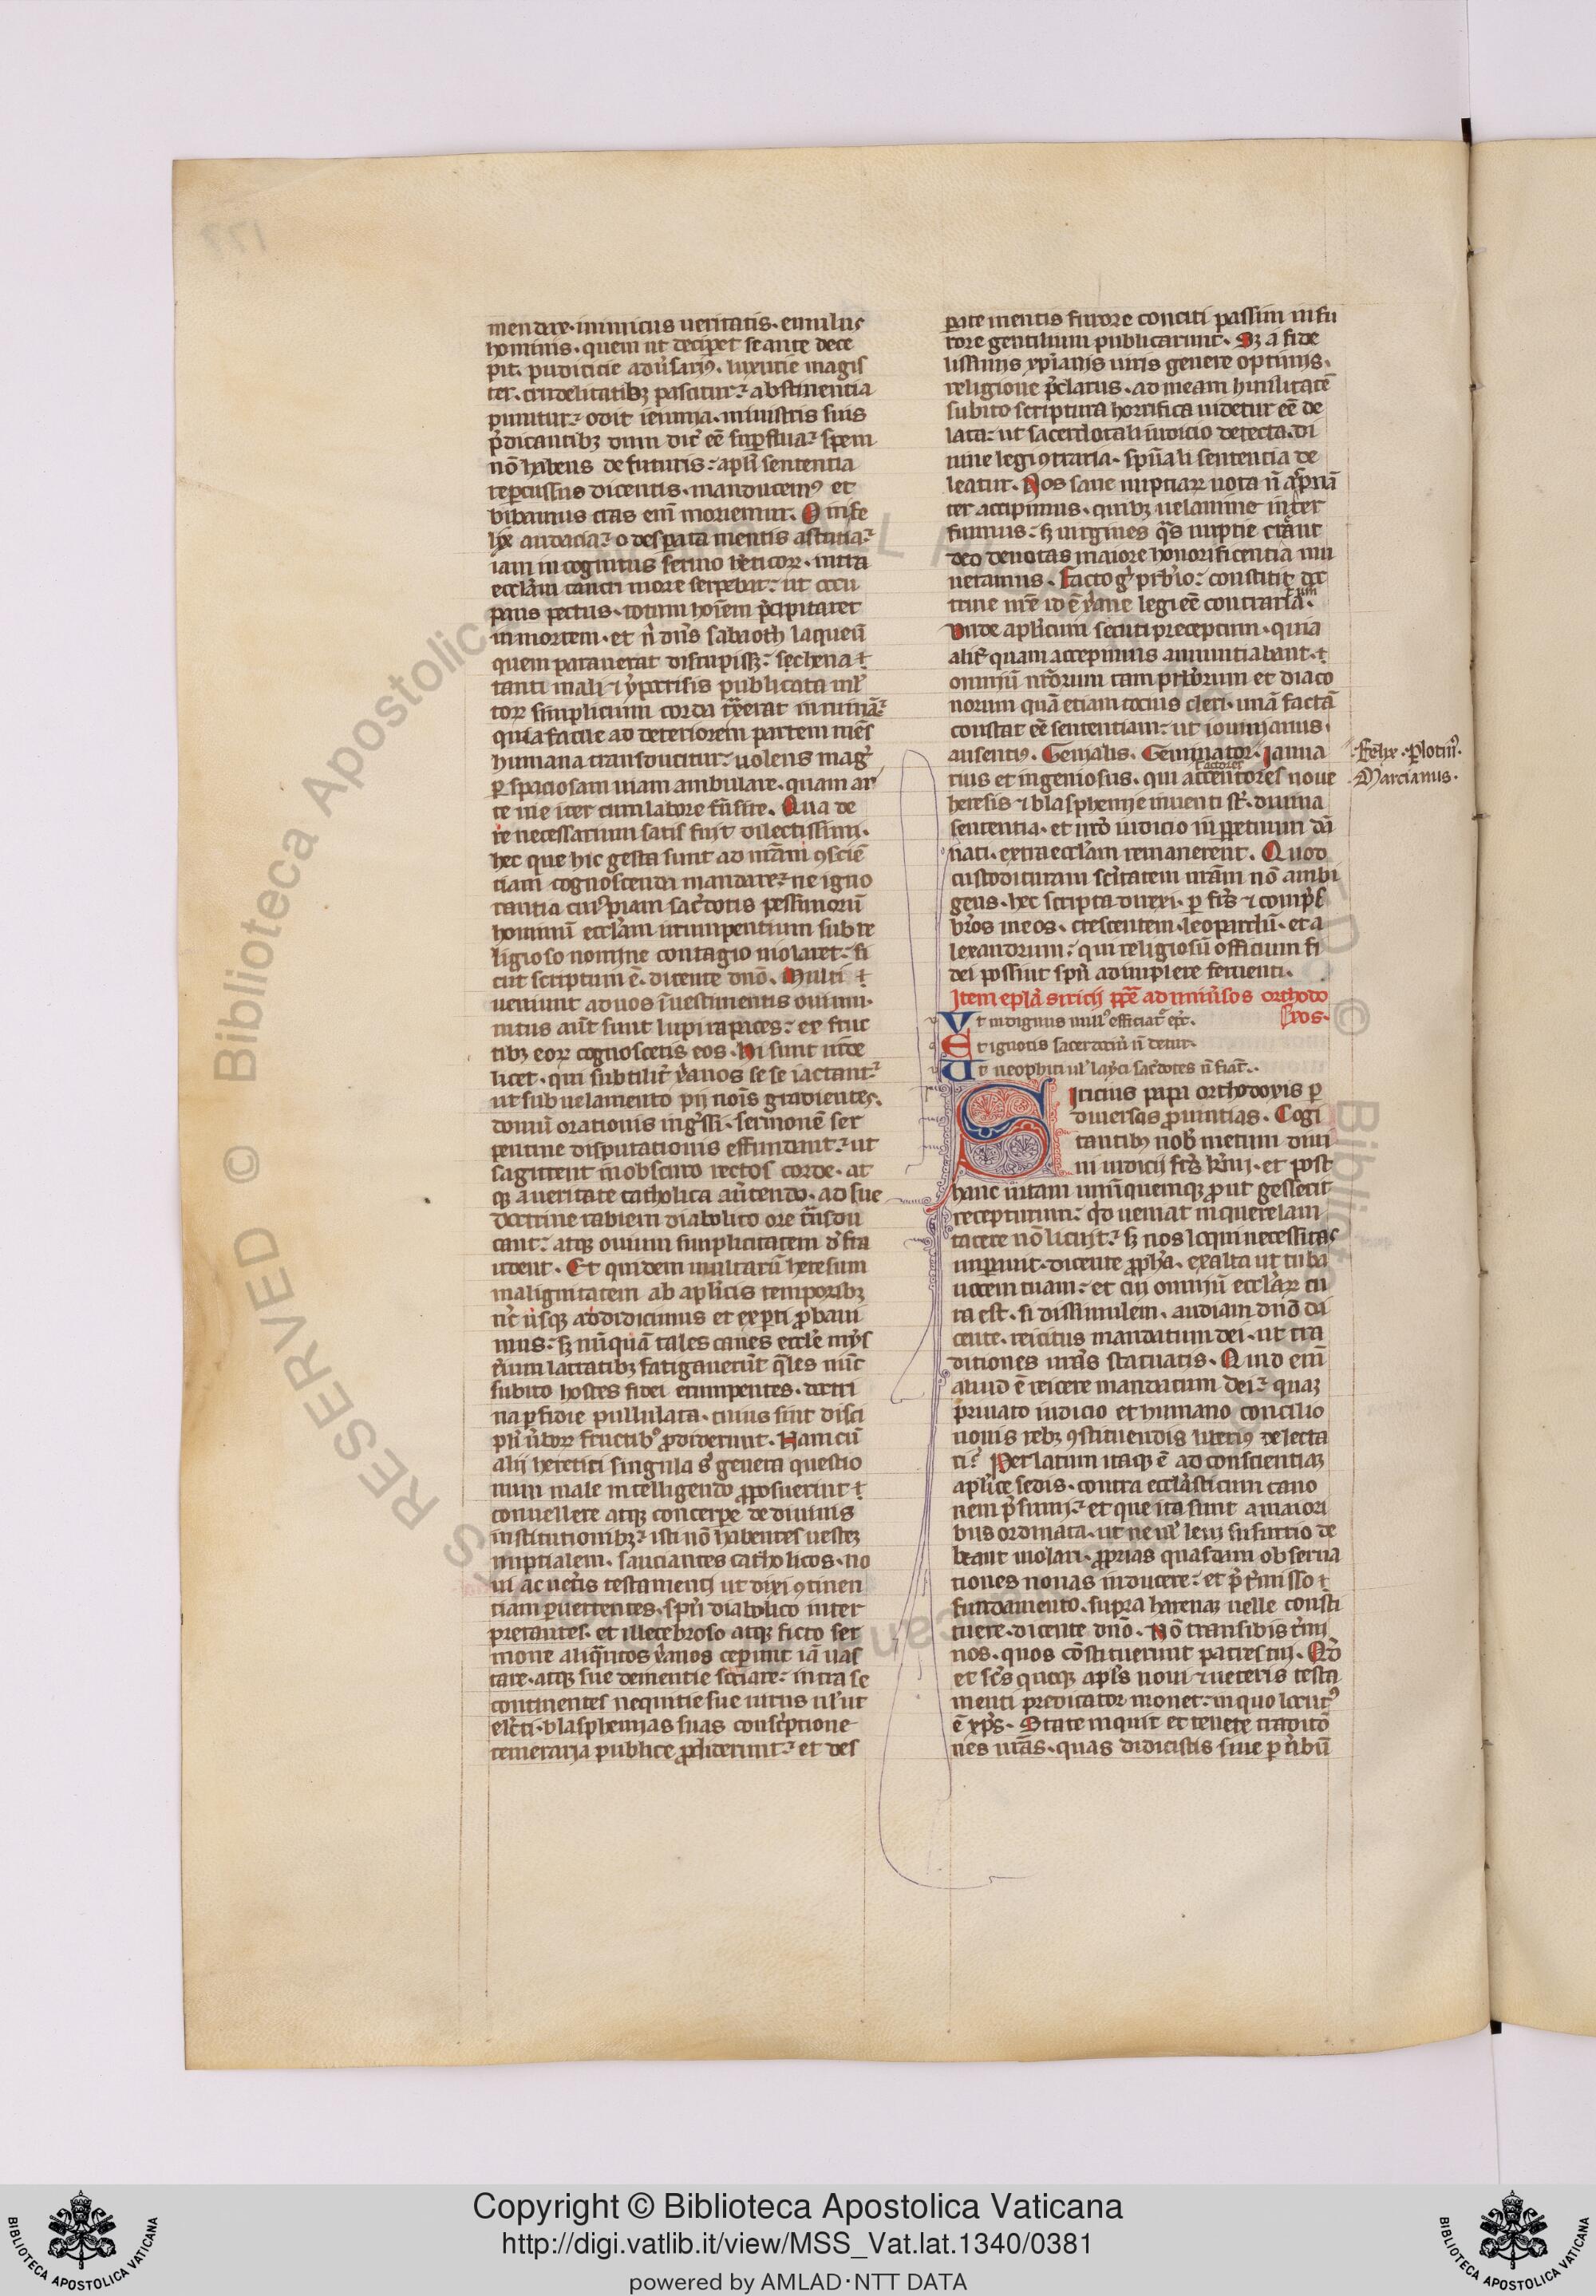 mendare · inimicus ueritatis · emulus
hominis · quem ut decipꝫet se ante dece
pit · pudicicie adũsariꝰ · luxurie magis
ter · crudelitatibꝫ pascitur · abstinentia
punitur · odit ieiunia · ministris suis
p̃dicantibꝫ dum dic̃ eẽ suꝑflua · spem
nõ habens de futuris · apl̃i sententia
reꝑcussus dicentis · manducemꝰ et
bibamus cras eni᷒ moriemur. O infe
lix audacia · o desꝑata mentis astutia ·
iam incognitus sermo hẽticoꝝ · intra
eccl̃am cancri more serpebat · ut occu
pans pectus · totum hoĩem p̃cipitaret
in mortem · et nĩ dñs sabaoth laqueũ
quem parauerat disrupissꝫ · scehena
tanti mali ⁊ ypocrisis publicata ml̃
toꝝ simplicium corda tr̃xerat in ruinã ·
quia facile ad deteriorem partem mẽs
humana transducitur · uolens mag̃
ꝑ spaciosam uiam ambulare · quam ar
te uie iter cum labore tr̃nsire. Qua de
re necessarium satis fuit dilectissimi ·
hec que hic gesta sunt ad ur̃am ꝯsciẽ
tiam cognoscenda mandare · ne igno
rantia cuiꝰpiam sac̃dotis pessimorũ
hominũ eccl̃am irrumpentium sub re
ligioso nomine contagio uiolaret · si
cut scriptum ẽ · dicente dño. Multi
ueniunt ad uos ĩ uestimentis ouium ·
intus aũt sunt lupi rapaces · ex fruc
tibꝫ eoꝝ cognoscetis eos. Hi sunt uide
licet · qui subtilit̃ xp̃ianos se se iactant ·
ut sub uelamento pij nõis gradientes ·
domũ orationis ing̃ssi · sermonẽ ser
pentine disputationis effundant · ut
sagittent in obscuro rectos corde · at
qꝫ a ueritate catholica aũtendo · ad sue
doctrine rabiem diabolico ore tr̃nsdu
cant · atqꝫ ouium simplicitatem d̃fra
udent. Et quidem multarũ heresum
malignitatem ab apl̃icis temporibꝫ
nc̃ usqꝫ addidicimus et exꝑti ꝓbaui
mus · sꝫ nũquã tales canes eccl̃e mys
t̃ium latratibꝫ fatigauerũt q̃les nũc
subito hostes fidei erumpentes · doctri
na ꝑfidie pullulata · cuius sint disci
pl̃i ũboꝝ fructibꝰ ꝓdiderunt. Nam cũ
alij heretici singula s̃ genera questio
num male intelligendo ꝓposuerint
conuellere atqꝫ concerpe de diuinis
institutionibꝫ · isti nõ habentes uestem
nuptialem · sauciantes catholicos · no
ui ac uet̃is testamenti ut dixi ꝯtinen
tiam ꝑuertentes · spũ diabolico inter
pretantes · et illecebroso atqꝫ ficto ser
mone aliq̃ntos xp̃ianos ceperunt iã uas
tare · atqꝫ sue dementie sociare · intra se
continentes nequitie sue uirus uerũt
elc̃ti · blasphemias suas consc̃ptione
temeraria publice ꝓdiderunt · et des
ꝑate mentis furore conciti passim in fu
rore gentilium publicarunt. Sꝫ a fide
lissimis xp̃ianis uiris genere optimis ·
religione p̃claris · ad meam humilitatẽ
subito scriptura horrifica uidetur eẽ de
lata · ut sacerdotali iudicio detecta · di
uine legi ꝯtraria · spũali sententia de
leatur. Nos sane nuptiaꝝ uota ñ asp̃nã
ter accipimus · quibꝫ uelamine inter
fumus · sꝫ uirgines q̃s nuptie creant
deo deuotas maiore honorificentia mu
neramus. Facto g̃ prb̃io · constitit doc
trine nr̃e id ẽ xp̃iane legi eẽ contraria ·
um
Unde apl̃icum secuti preceptum · quia
alit̃ quam accepimus annuntiabant ·
omniũ nr̃orum tam prb̃rorum et diaco
norum quã etiam tocius cleri · unã factã
constat eẽ sententiam · ut iouinianus ·
auxentiꝰ · Genialis · Geminator · Ianua
rius et ingeniosus · qui accentores noue
t actores
heresis ⁊ blasphemie inuenti st̃ · diuina
sententia · et nr̃o iudicio in ꝑpetuum dã
nati · extra eccl̃am remanerent. Quod
custodituram sc̃itatem ur̃am nõ ambi
gens · hec scripta direxi · ꝑ fr̃s ⁊ comp̃sb̃
bros meos · crescentem · leoparchũ · et a
lexandrum · qui religiosũ officium fi
dei possint spũ adimplere feruenti.
Felix · Plotinꝰ ·
Marcianus ·
Item epl̃a siricij pp̃e ad uniũsos orthodo
xos ·
Ut indignus nullꝰ efficiat̃ ep̃c ·
Et ignotis sacerdotiũ ñ detur ·
Ut neophiti ul̃ layci sac̃dotes ñ fiãt ·
Siricius papa orthodoxis ꝑ
diuersas ꝓuintias. Cogi
tantibꝰ nob̃ metum diui
ni iudicij fr̃s km̃i · et post
hanc uitam unũquemqꝫ ꝓut gesserit
recepturum · q̃d ueniat in querelam
tacere nõ licuit · sꝫ nos loqui necessitas
imꝑauit · dicente ꝓph̃a · exalta ut tuba
uocem tuam · et cui omniũ eccl̃iaꝝ cu
ra est · si dissimulem · audiam dño di
cente · reicitis mandatum dei · ut tra
ditiones ur̃as statuatis. Quid eni᷒
aliud ẽ reicere mandatum dei · quam
priuato iudicio et humano concilio
nouis rebꝫ ꝯstituendis liberiꝰ delecta
ri · Perlatum itaqꝫ ẽ ad conscientiam
apl̃ice sedis · contra eccl̃asticum cano
nem p̃sumi · et que ita sunt a maiori
bus ordinata · ut ne uel leui susurrio de
beant uiolari · ꝓprias quasdam obserua
tiones nouas inducere · et p̃t̃misso
fundamento · supra harenam uelle consti
tuere · dicente dño. Nõ transibis t̃mi
nos · quos cõstituerunt patres tui. Qd̃
et sc̃s quoqꝫ apl̃s noui ⁊ ueteris testa
menti predicator monet · in quo locutꝰ
ẽ xp̃s. State inquit et tenete traditõ
nes ur̃as · quas didicistis siue ꝑ ũbũ
RESERVED © Biblioteca Apostolica Vaticana ALL RIGHTS
Copyright © Biblioteca Apostolica Vaticana
http://digi.vatlib.it/view/MSS_Vat.lat.1340/0381
powered by AMLAD·NTT DATA
BIBLIOTECA APOSTOLICA VATICANA
BIBLIOTECA APOSTOLICA VATICANA